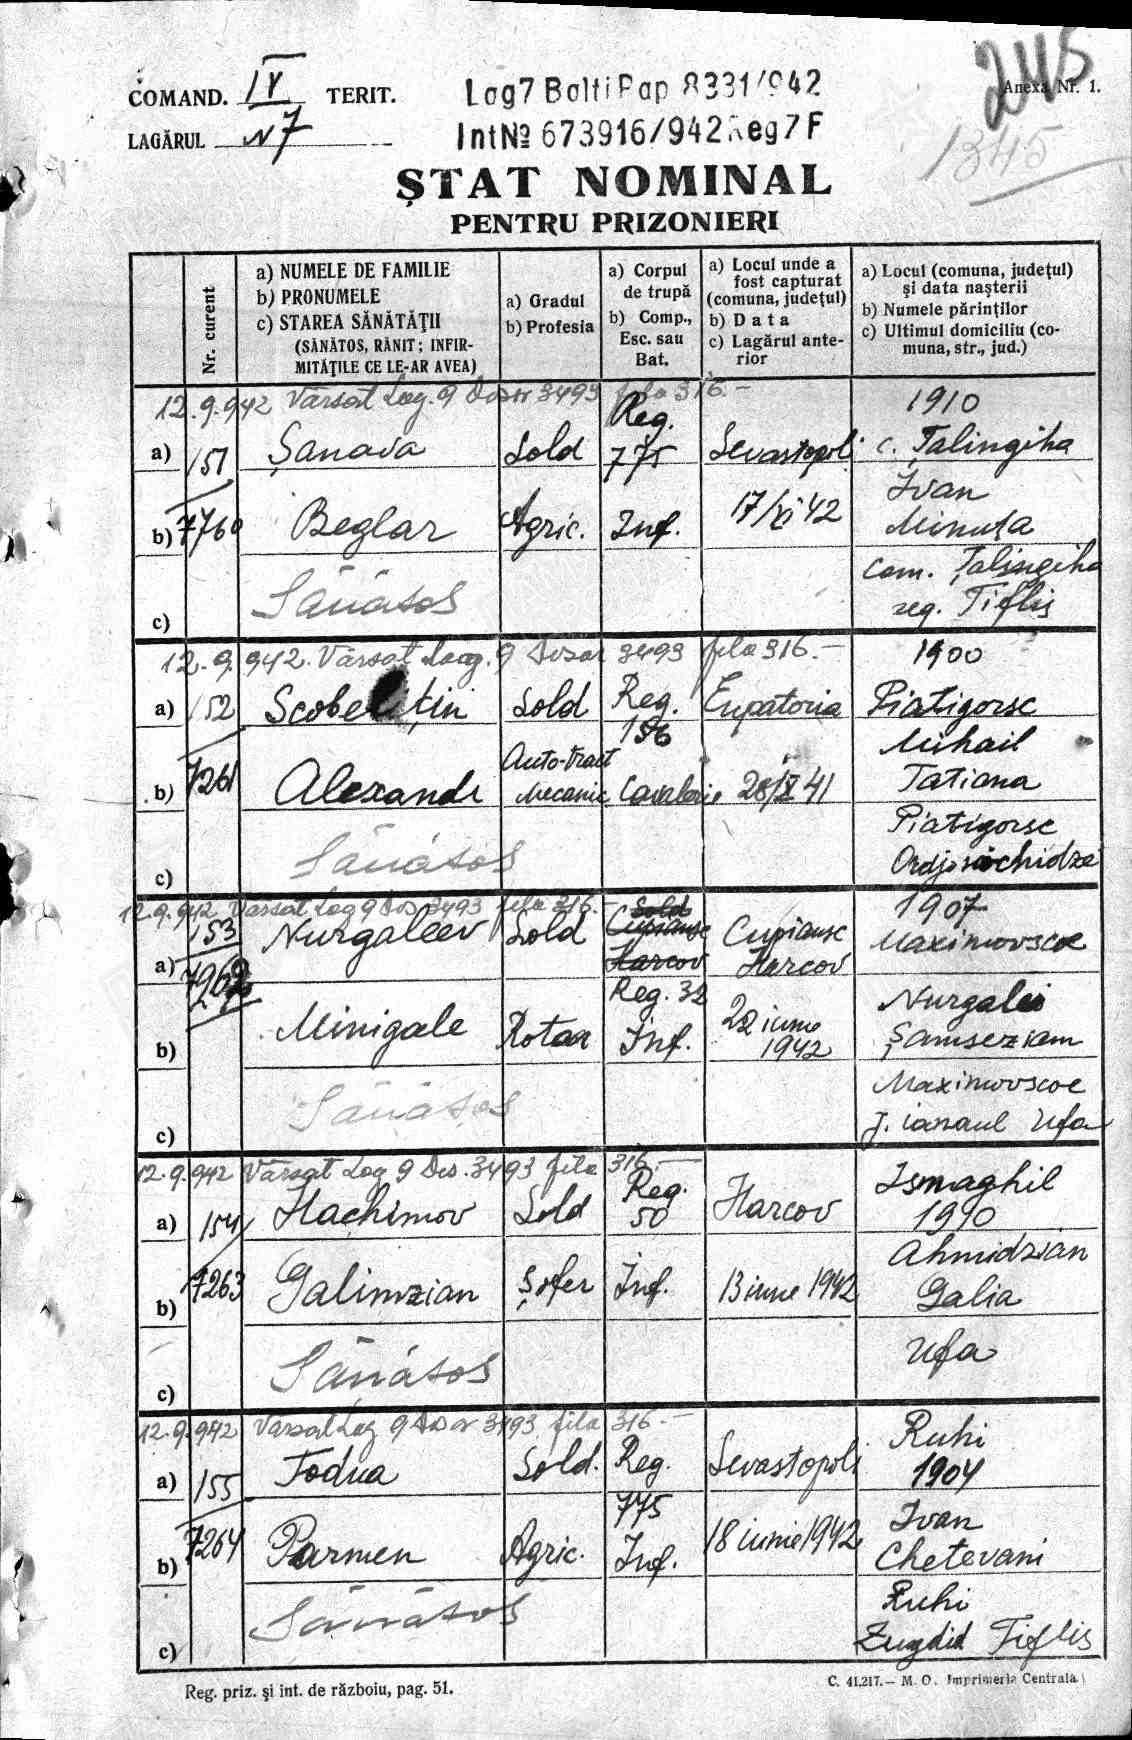 2115
Anexa Nr. 1.
1345
COMAND. IV TERIT.
LAGĂRUL N 7
Lag7 Balti Pap 8331/942
Int№ 673916/942 Reg7F
ȘTAT NOMINAL
PENTRU PRIZONIERI
Nr. curent
a) NUMELE DE FAMILIE
b) PRONUMELE
c) STAREA SĂNĂTĂȚII
(SĂNĂTOS, RĂNIT; INFIR-
MITĂȚILE CE LE-AR AVEA)
a) Gradul
b) Profesia
a) Corpul
de trupă
b) Comp.,
Esc. sau
Bat.
a) Locul unde a
fost capturat
(comuna, județul)
b) Data
c) Lagărul ante-
rior
a) Locul (comuna, județul)
și data nașterii
b) Numele părinților
c) Ultimul domiciliu (co-
muna, str., jud.)
12.9.942 Vărsat Lag. 9 Dosar 3493 fila 316.-
a) 151 Șanava Sold Reg. 775 Sevastopoli 1910 c. Țalingiha
b) 7760 Beglar Agric. Inf. 17/VI 42 Ivan
Minuța
c) Sănătos com. Țalingiha
reg. Tiflis
12.9.942. Vărsat Lag. 9 Dosar 3493 fila 316.-
a) 152 Scobelțin Sold Reg. 156 Eupatoria 1900 Piatigorsc
b) 7261 Alexandr Auto-tract Mecanic Cavalerie 28/X 41 Mihail
Tatiana
c) Sănătos Piatigorsc
Ordjonichidze
12.9.942 Vărsat Lag 9 Dos 3493 fila 316.-
a) 153 Nurgaleev Sold Sold Cupiansc Harcov Cupiansc Harcov 1907 Maximovscoe
7262
b) Minigale Rotar Reg. 32 Inf. 22 iunie 1942 Nurgalei
Șamseziam
c) Sănătos Maximovscoe
J. ianaul Ufa
12.9.942 Vărsat Lag 9 Dos. 3493 fila 316.-
a) 154 Hachimov Sold Reg. 50 Harcov Ismaghil 1910
b) 7263 Galimzian Șofer Inf. 13 iunie 1942 Ahmidzian
Galia
c) Sănătos Ufa
12.9.942 Vărsat Lag 9 Dosar 3493 fila 316.-
a) 155 Todua Sold. Reg. Sevastopoli Ruhi 1904
b) 7264 Parmen Agric. 775 Inf. 18 iunie 1942 Ivan
Chetevani
c) Sănătos Ruhi
Zugdid Tiflis
Reg. priz. și int. de război, pag. 51.
C. 41.217.— M. O. Imprimeria Centrala